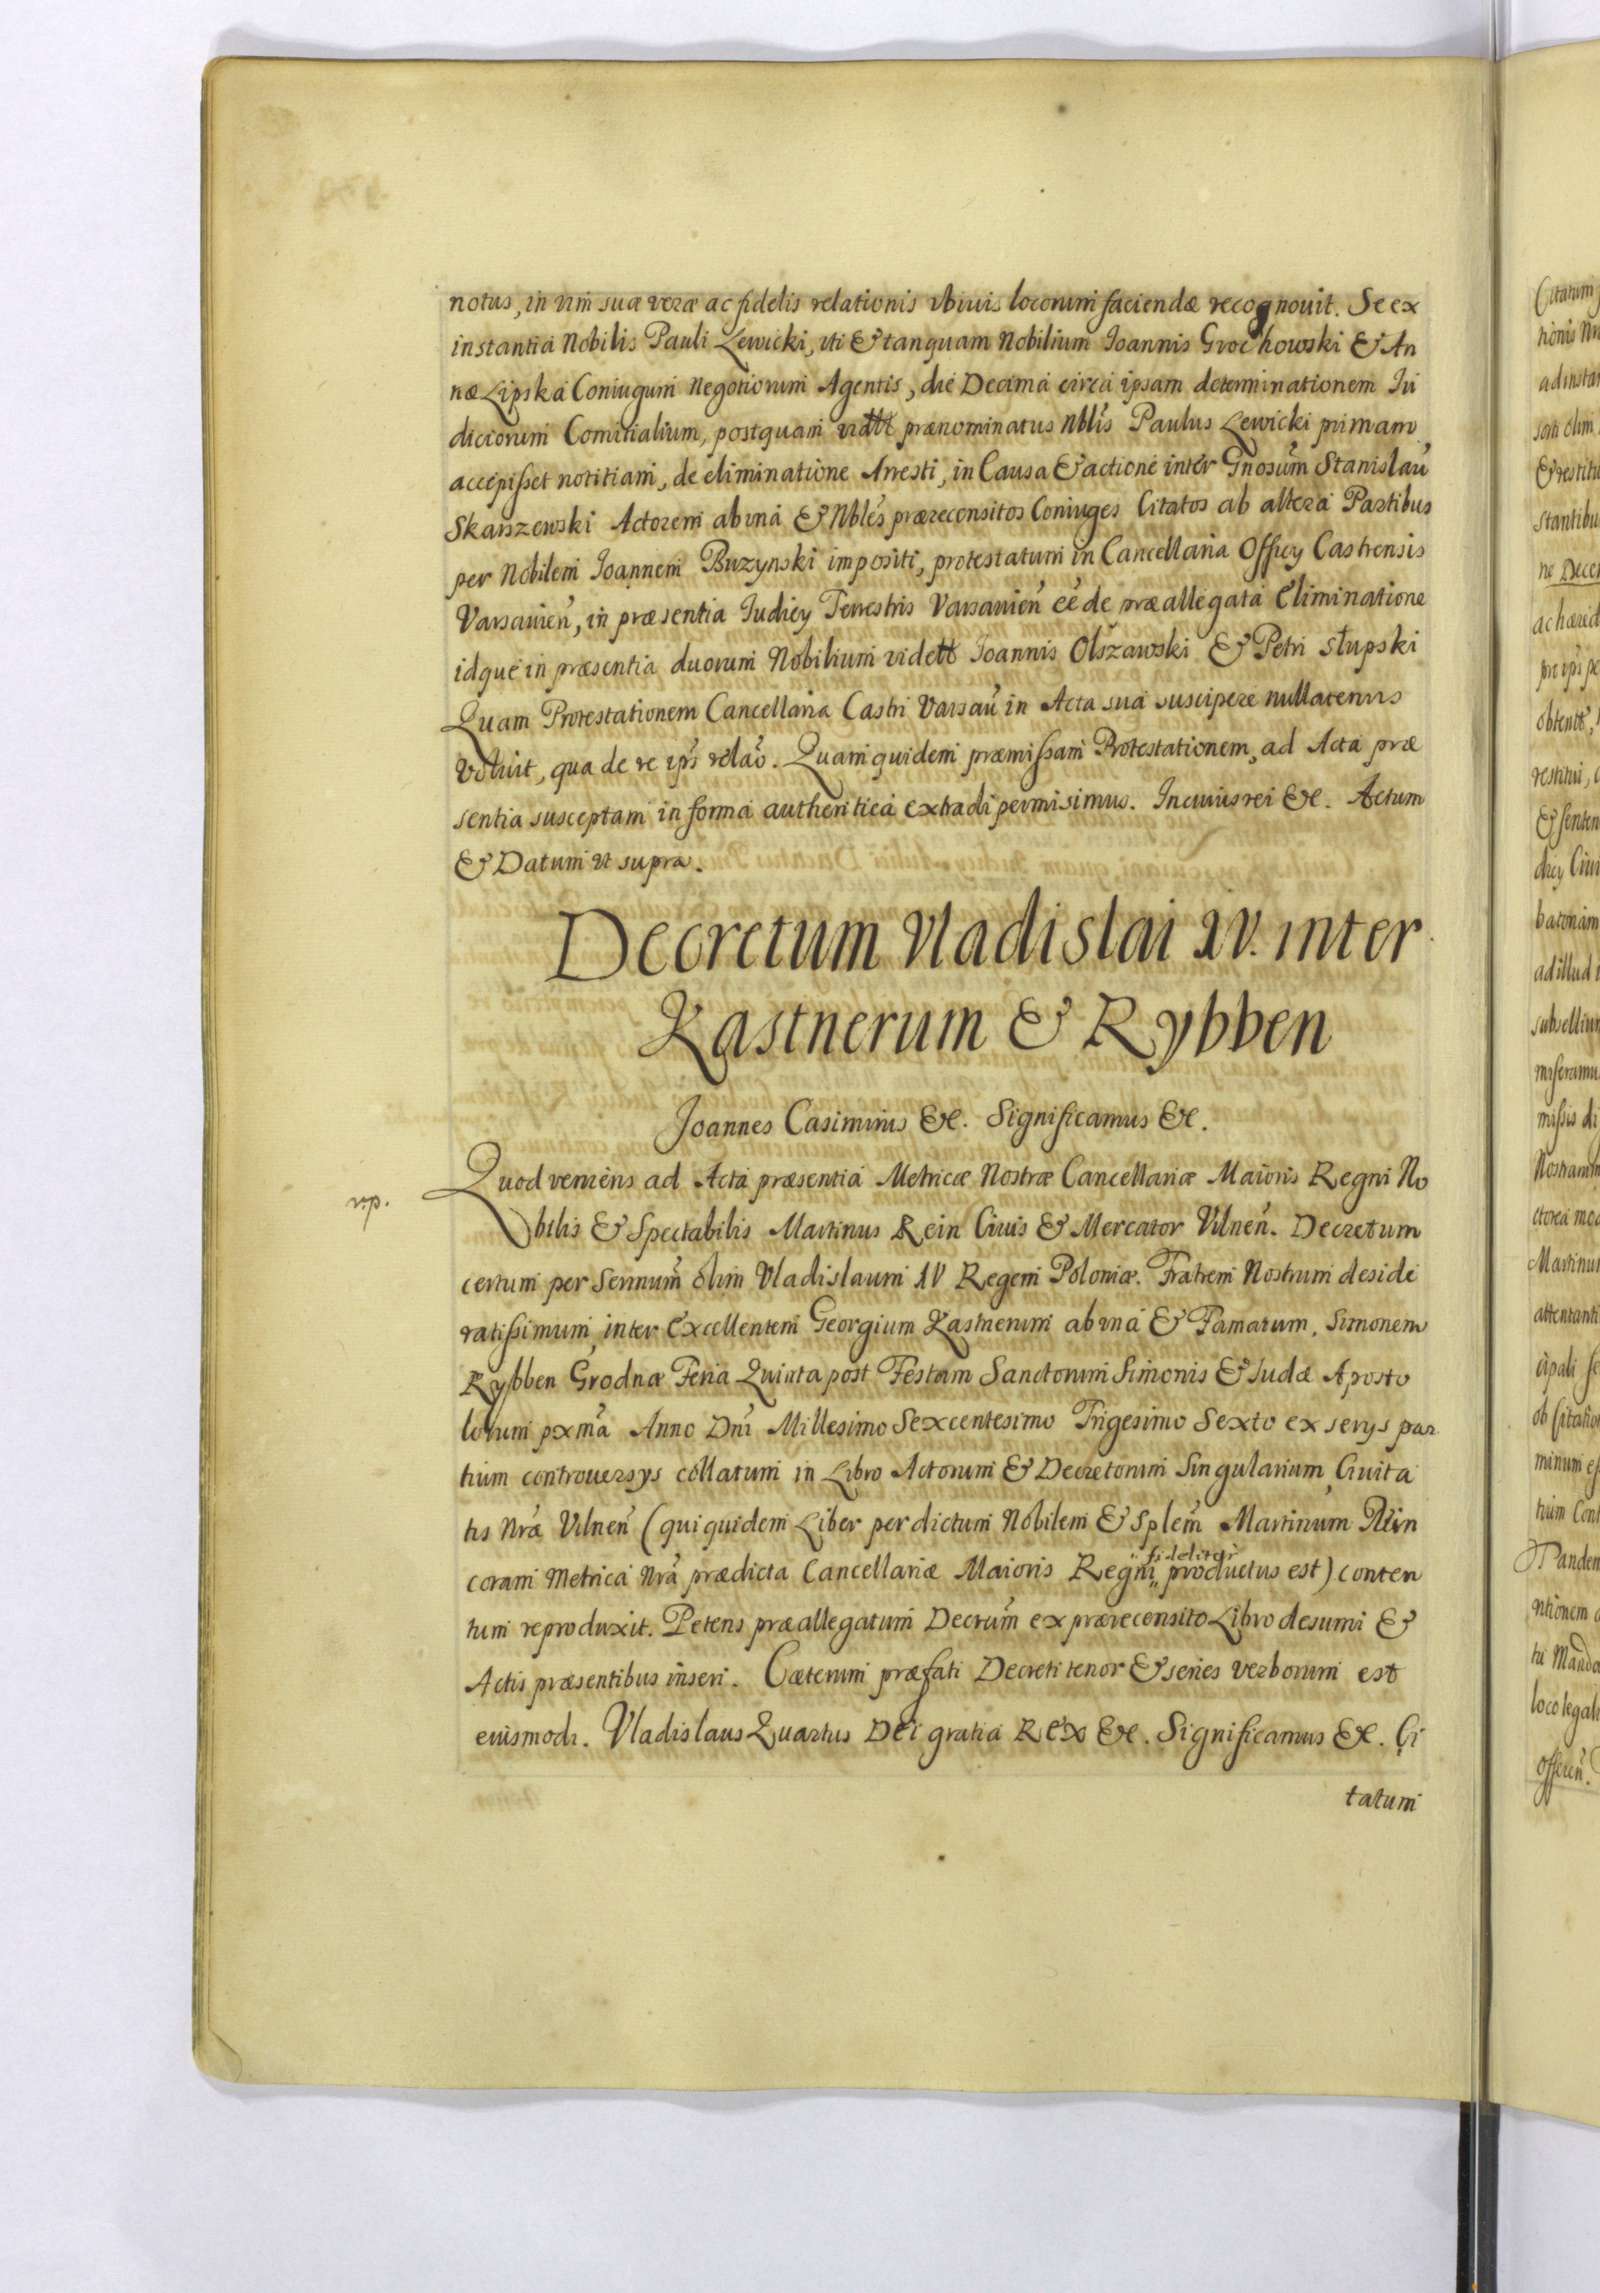 notus, in vim suæ veræ ac fidelis relationis vbiuis locorum faciendæ recognouit. Se ex
instantia Nobilis Pauli Lewicki, uti & tanquam Nobilium Ioannis Grochowski & An
næ Lipska Coniugum Negotiorum Agentis, die Decima circa ipsam determinationem Iu
diciorum Comitialium, postquam vidtt prænominatus Nblis Paulus Lewicki primam
accepisset notitiam, de eliminatione Arresti, in Causa & actione inter Gnosum Stanislau
Skarszewski Actorem ab vna & Nbles prærecensitos Coniuges Citatos ab altera Partibus
per Nobilem Ioannem Buzynski impositi, protestatum in Cancellaria Officy Castrensis
Varsauien, in præsentia Iudicy Terrestris Varsauien ee de præallegata Eliminatione
idque in præsentia duorum Nobilium vidett Ioannis Olszawski & Petri Słupski
Quam Protestationem Cancellaria Castri Varsau in Acta sua suscipere nullatenus
voluit, qua de re iprs relao. Quam quidem præmissam Protestationem, ad Acta præ
sentia susceptam in forma authentica extradi permisimus. In cuius rei &c. Actum
& Datum ut supra.
Decretum Vladislai IV. inter
Kastnerum & Rybben
Joannes Casimirus &c. Significamus &c.
Quod veniens ad Acta præsentia Metricæ Nostræ Cancellariæ Maioris Regni No
bilis & Spectabilis Martinus Rein Ciuis & Mercator Vilnen. Decretum
certum per Sernnum olim Vladislaum IV Regem Poloniæ. Fratrem Nostrum deside
ratissimum, inter Excellentem Georgium Kastnerum ab vna & Famatum, Simonem
Rybben Grodnæ Feria Quinta post Festum Sanctorum Simonis & Iudæ Aposto
lorum pxma Anno Dni Millesimo Sexcentesimo Trigesimo Sexto ex serys par
tium controuersys collatum in Libro Actorum & Decretorum Singularium Ciuita
tis Nræ Vilnen (qui quidem Liber per dictum Nobilem & Splem Martinum Rein
fideliter
coram Metrica Nra prædicta Cancellariæ Maioris Regni productus est) conten
tum reproduxit. Petens præallegatum Decrum ex prærecensito Libro desumi &
Actis præsentibus inseri. Cæterum præfati Decreti tenor & series verborum est
eiusmodi. Vladislaus Quartus Dei gratia Rex &c. Significamus &c. Ci
tatum